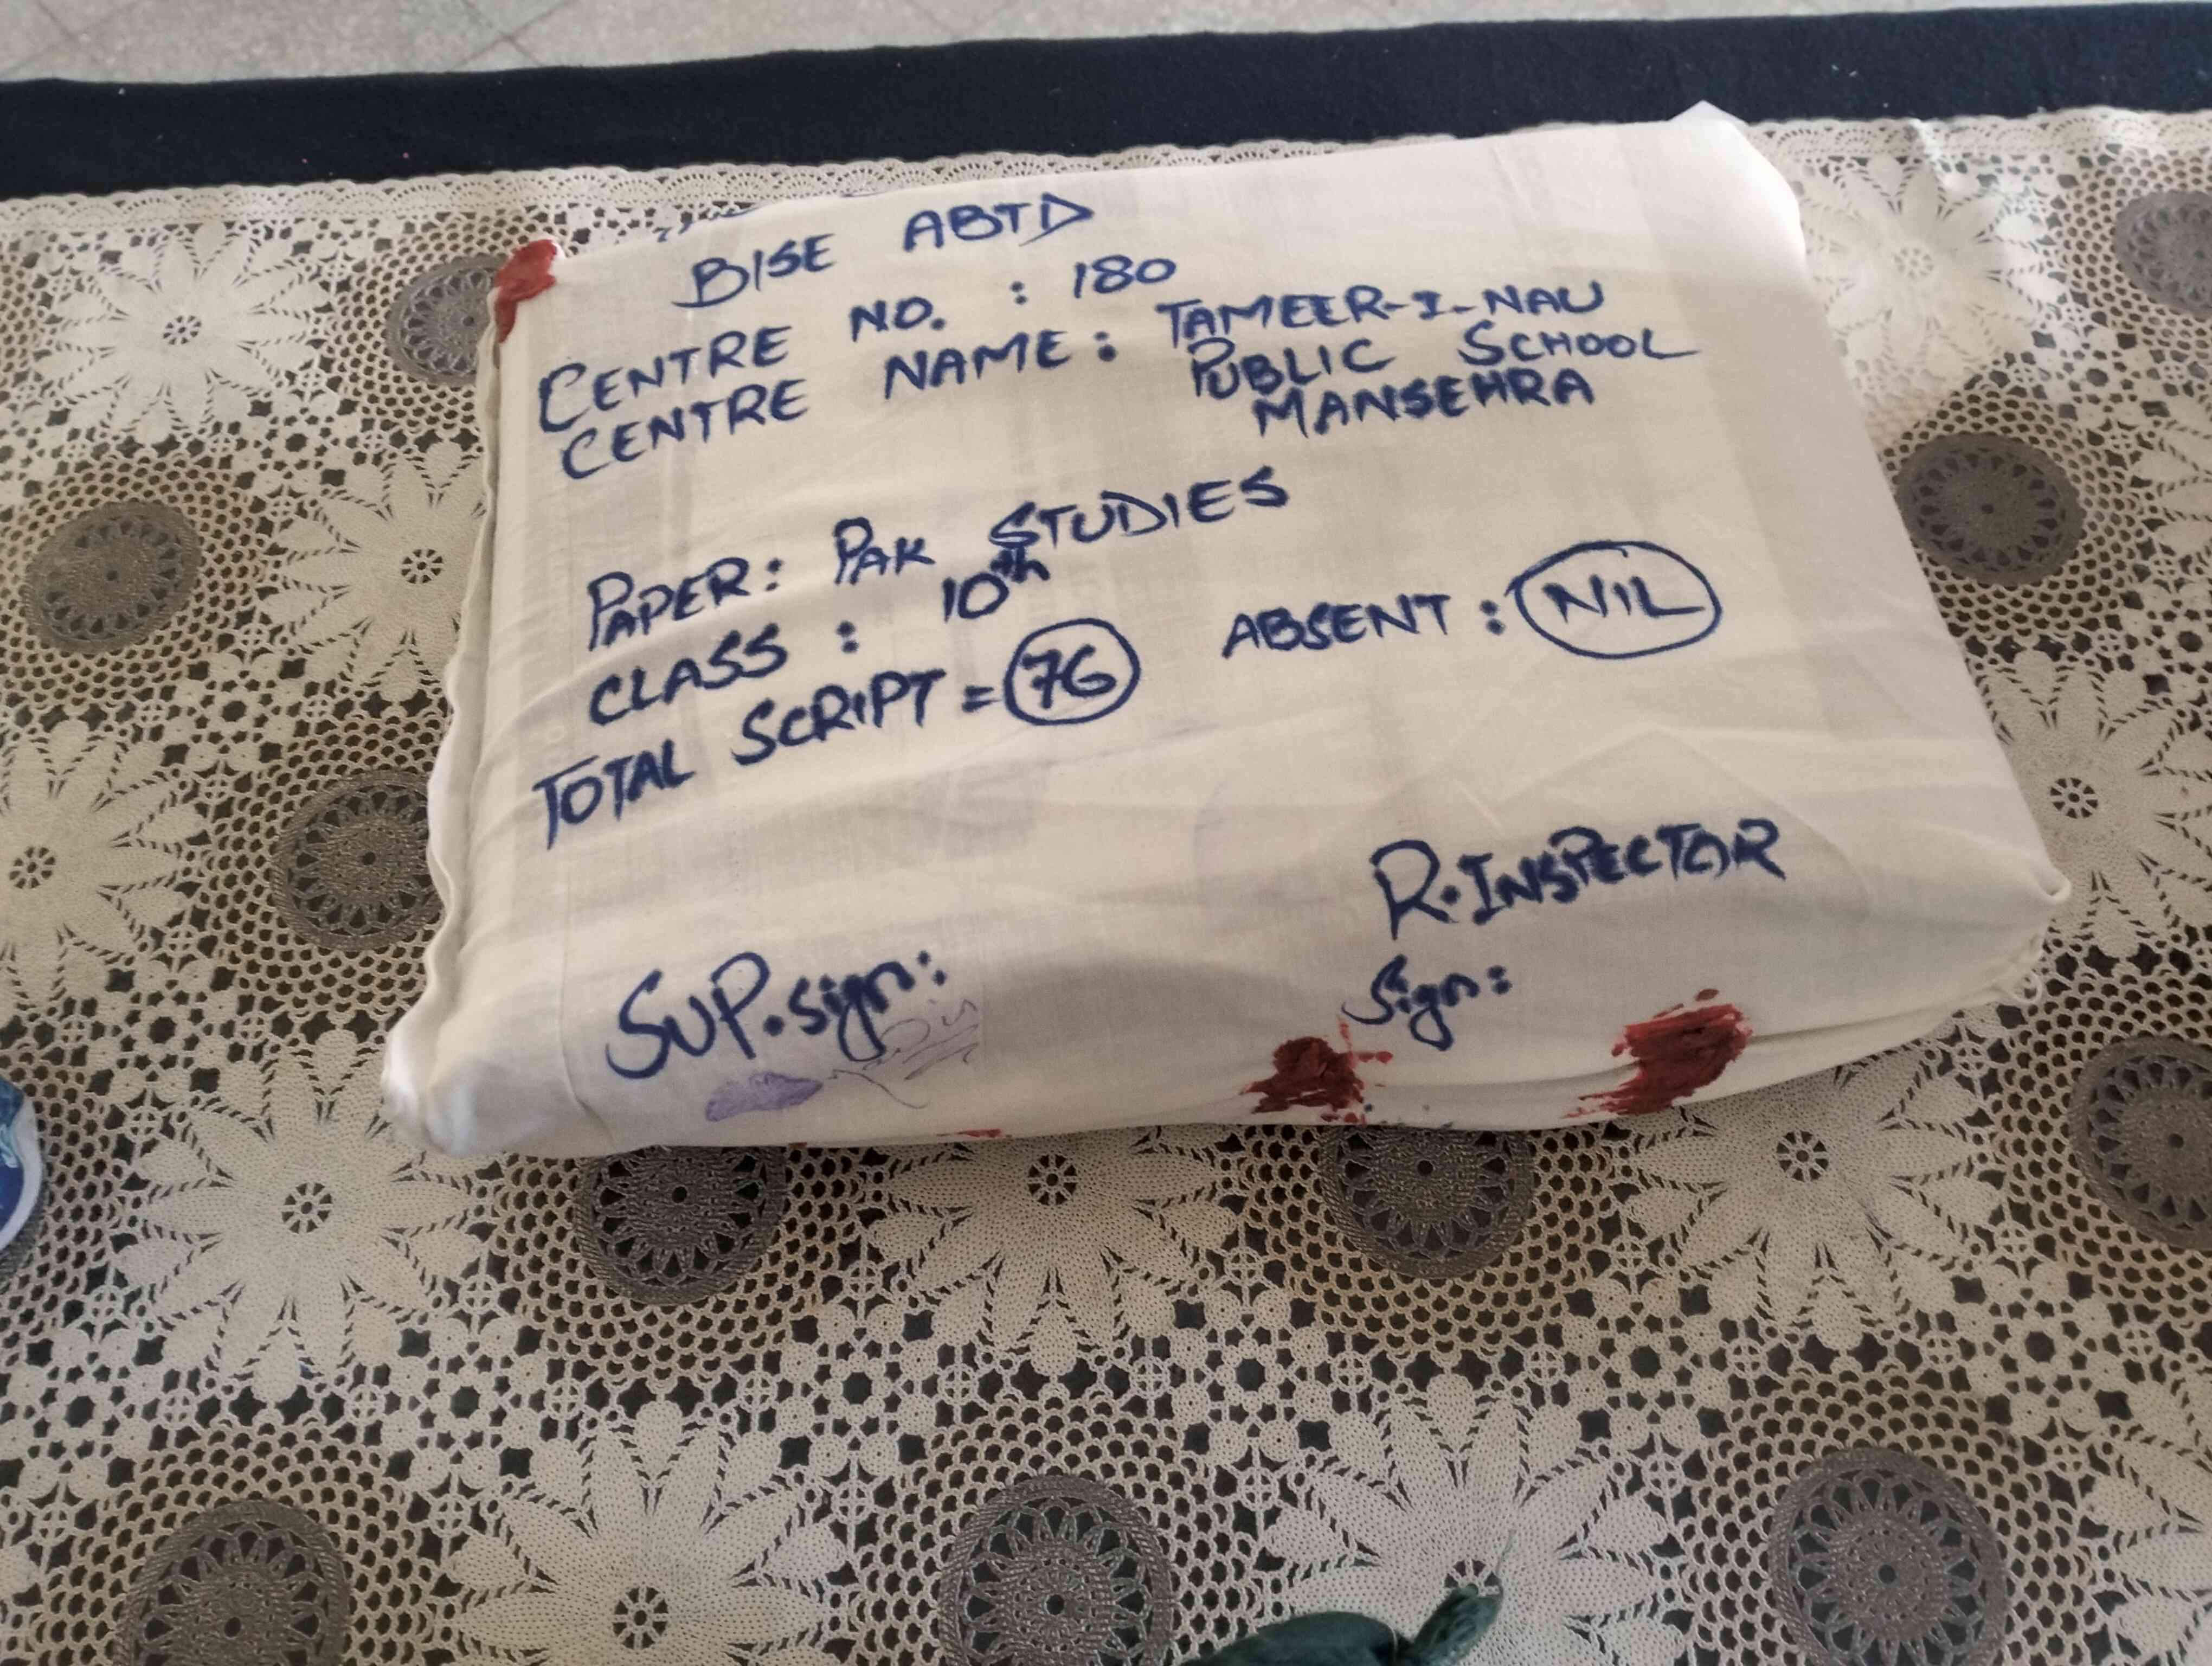 BISE ABTD
CENTRE NO. : 180
CENTRE NAME : TAMEER-I-NAU
PUBLIC SCHOOL
MANSEHRA
PAPER: PAK STUDIES
CLASS : 10th
TOTAL SCRIPT = 76 ABSENT : NIL
R.INSPECTOR
Sign:
SUP.sign: